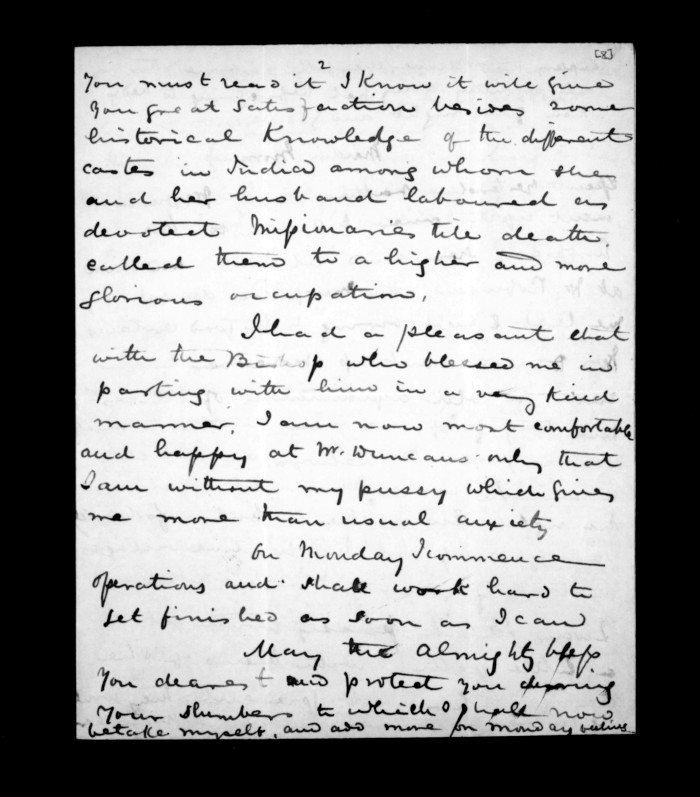 [8]
2
You must read it I know it will give
You great satisfaction besides some
historical Knowledge of the different
castes in India among whom she
and her husband laboured as
devoted Missionaries till death
called them to a higher and more
glorious occupation.
I had a pleasant chat
with the Bishop who blessed me in
parting with him in a very kind
manner. I am now most comfortable
and happy at Mr. Duncans only that
I am without my pussy which gives
me more than usual anxiety
On Monday I commence
operations and shall work hard to
get finished as soon as I can
May the Almighty bless
You dearest and protect you during
Your slumbers to which I shall now
betake myself, and add more on Monday